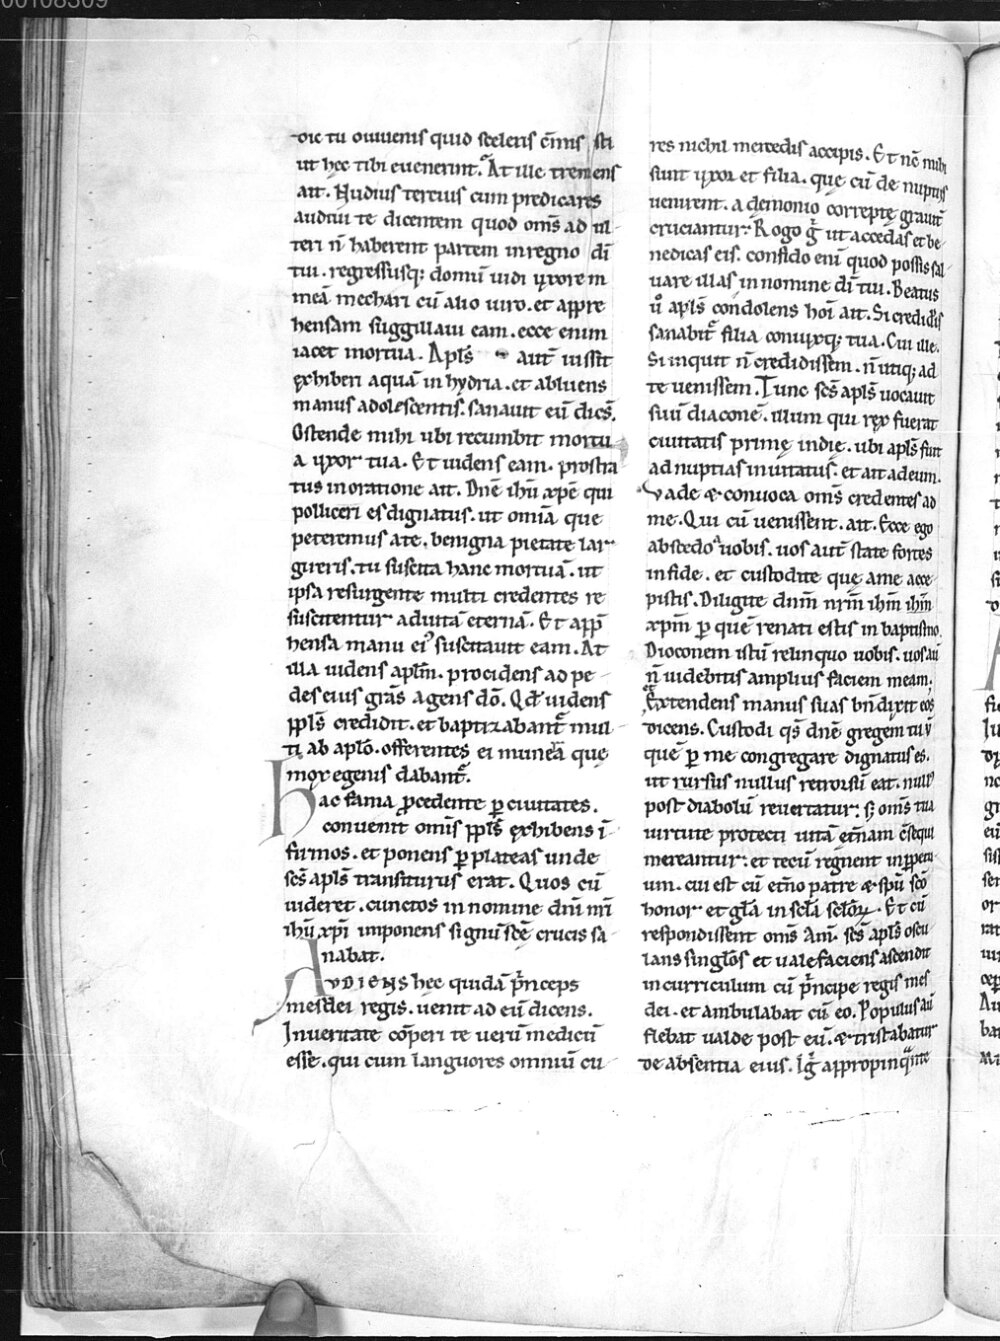 00108309
dic tu o iuuenis quid sceleris cōmis sti
ut hec tibi euenerint. At ille tremens
ait. Nudius tercius cum predicares
audiui te dicentem quod oms̄ ad ul
teri n̄ haberent partem in regno dī
tui. regressusq; domū uidi uxorem
meā mechari cū alio uiro. et appre
hensam suggillaui eam. ecce enim
iacet mortua. Apls̄ aut̄ iussit
exhiberi aquā in hydria. et abluens
manus adolescentis. sanauit eū dics̄.
Ostende mihi ubi recumbit mortu
a uxor tua. Et uidens eam. prostra
tus in oratione ait. Dn̄e ihū xp̄e qui
polliceri es dignatus. ut omīa que
peteremus a te. benigna pietate lar
gireris. tu suscita hanc mortuā. ut
ipsa resurgente multi credentes re
suscitentur ad uitā eternā. Et app̄
hensa manu ei᾽ suscitauit eam. At
illa uidens aplm̄. procidens ad pe
des eius grās agens dō. Qd̄ uidens
ppls̄ credidit. et baptizabant᷑ mul
ti ab aplō. offerentes ei munera que
mox egenis dabant᷑.
Hac fama p̄cedente ꝑ ciuitates.
conuenit omīs ppls̄ exhibens ī
firmos. et ponens ꝑ plateas unde
scs̄ apls̄ transiturus erat. Quos cū
uideret. cunctos in nomine dnī nr̄i
ihū xp̄i imponens signū scē crucis sa
nabat.
AVDIENS hec quidā p̄nceps
mesdei regis. uenit ad eū dicens.
In ueritate cōperi te uerū medicū
esse. qui cum languores omniū cu
res nichil mercedis accipis. Et nc̄ mihi
sunt uxor et filia. que cū de nuptiis
uenirent. a demonio correpte grauit᷑
cruciantur. Rogo ḡ ut accedas et be
nedicas eis. confido enī quod possis sal
uare illas in nomine dī tui. Beatus
ū apls̄ condolens hoī ait. Si credidis̄
sanabit᷑ filia coniuxq; tua. Cui ille.
Si inquit n̄ credidissem. n̄ utiq; ad
te uenissem. Tunc scs̄ apls̄ uocauit
suū diaconē. illum qui rex fuerat
ciuitatis prime indie. ubi apls̄ fuit
ad nuptias inuitatus. et ait ad eum.
Vade & conuoca oms̄ credentes ad
me. Qui cū uenissent. ait. Ecce ego
abscedo a uobis. uos aut̄ state fortes
in fide. et custodite que a me acce
pistis. Diligite dnm̄ nr̄m ihm̄ ihm̄
xpm̄ ꝑ quē renati estis in baptismo.
Dioconem istū relinquo uobis. uos aū
n̄ uidebitis amplius faciem meam.
et Extendens manus suas bn̄dixit eos
dicens. Custodi qs̄ dn̄e gregem tuū
quē ꝑ me congregare dignatus es.
ut rursus nullus retrorsū eat. null᾽
post diabolū reuertatur. s; oms̄ tua
uirtute protecti uitā etn̄am cōsequi
mereantur. et tecū regnent in ꝑpetu
um. cui est cū etn̄o patre & spū scō
honor et glā in sclā sclōꝝ. Et cū
respondissent oms̄ Am̄. scs̄ apls̄ oscu
lans singlōs et uale faciens ascendit
in curriculum cū p̄ncipe regis mes
dei. et ambulabat cū eo. Populus aū
flebat ualde post eū. & tristabatur
de absentia eius. Iḡ appropinq̄nte